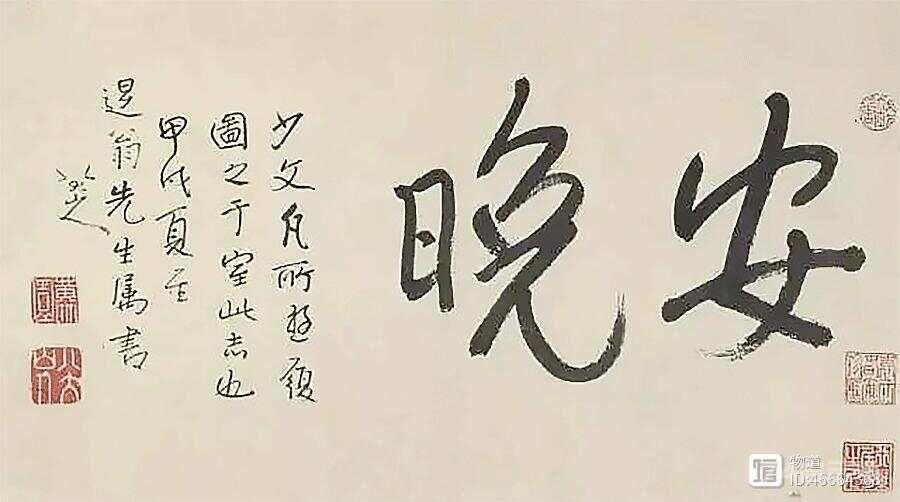 安晚
少文凡所遊履
圖之于室此志也
甲戌夏至
退翁先生属書
八大山人
物道